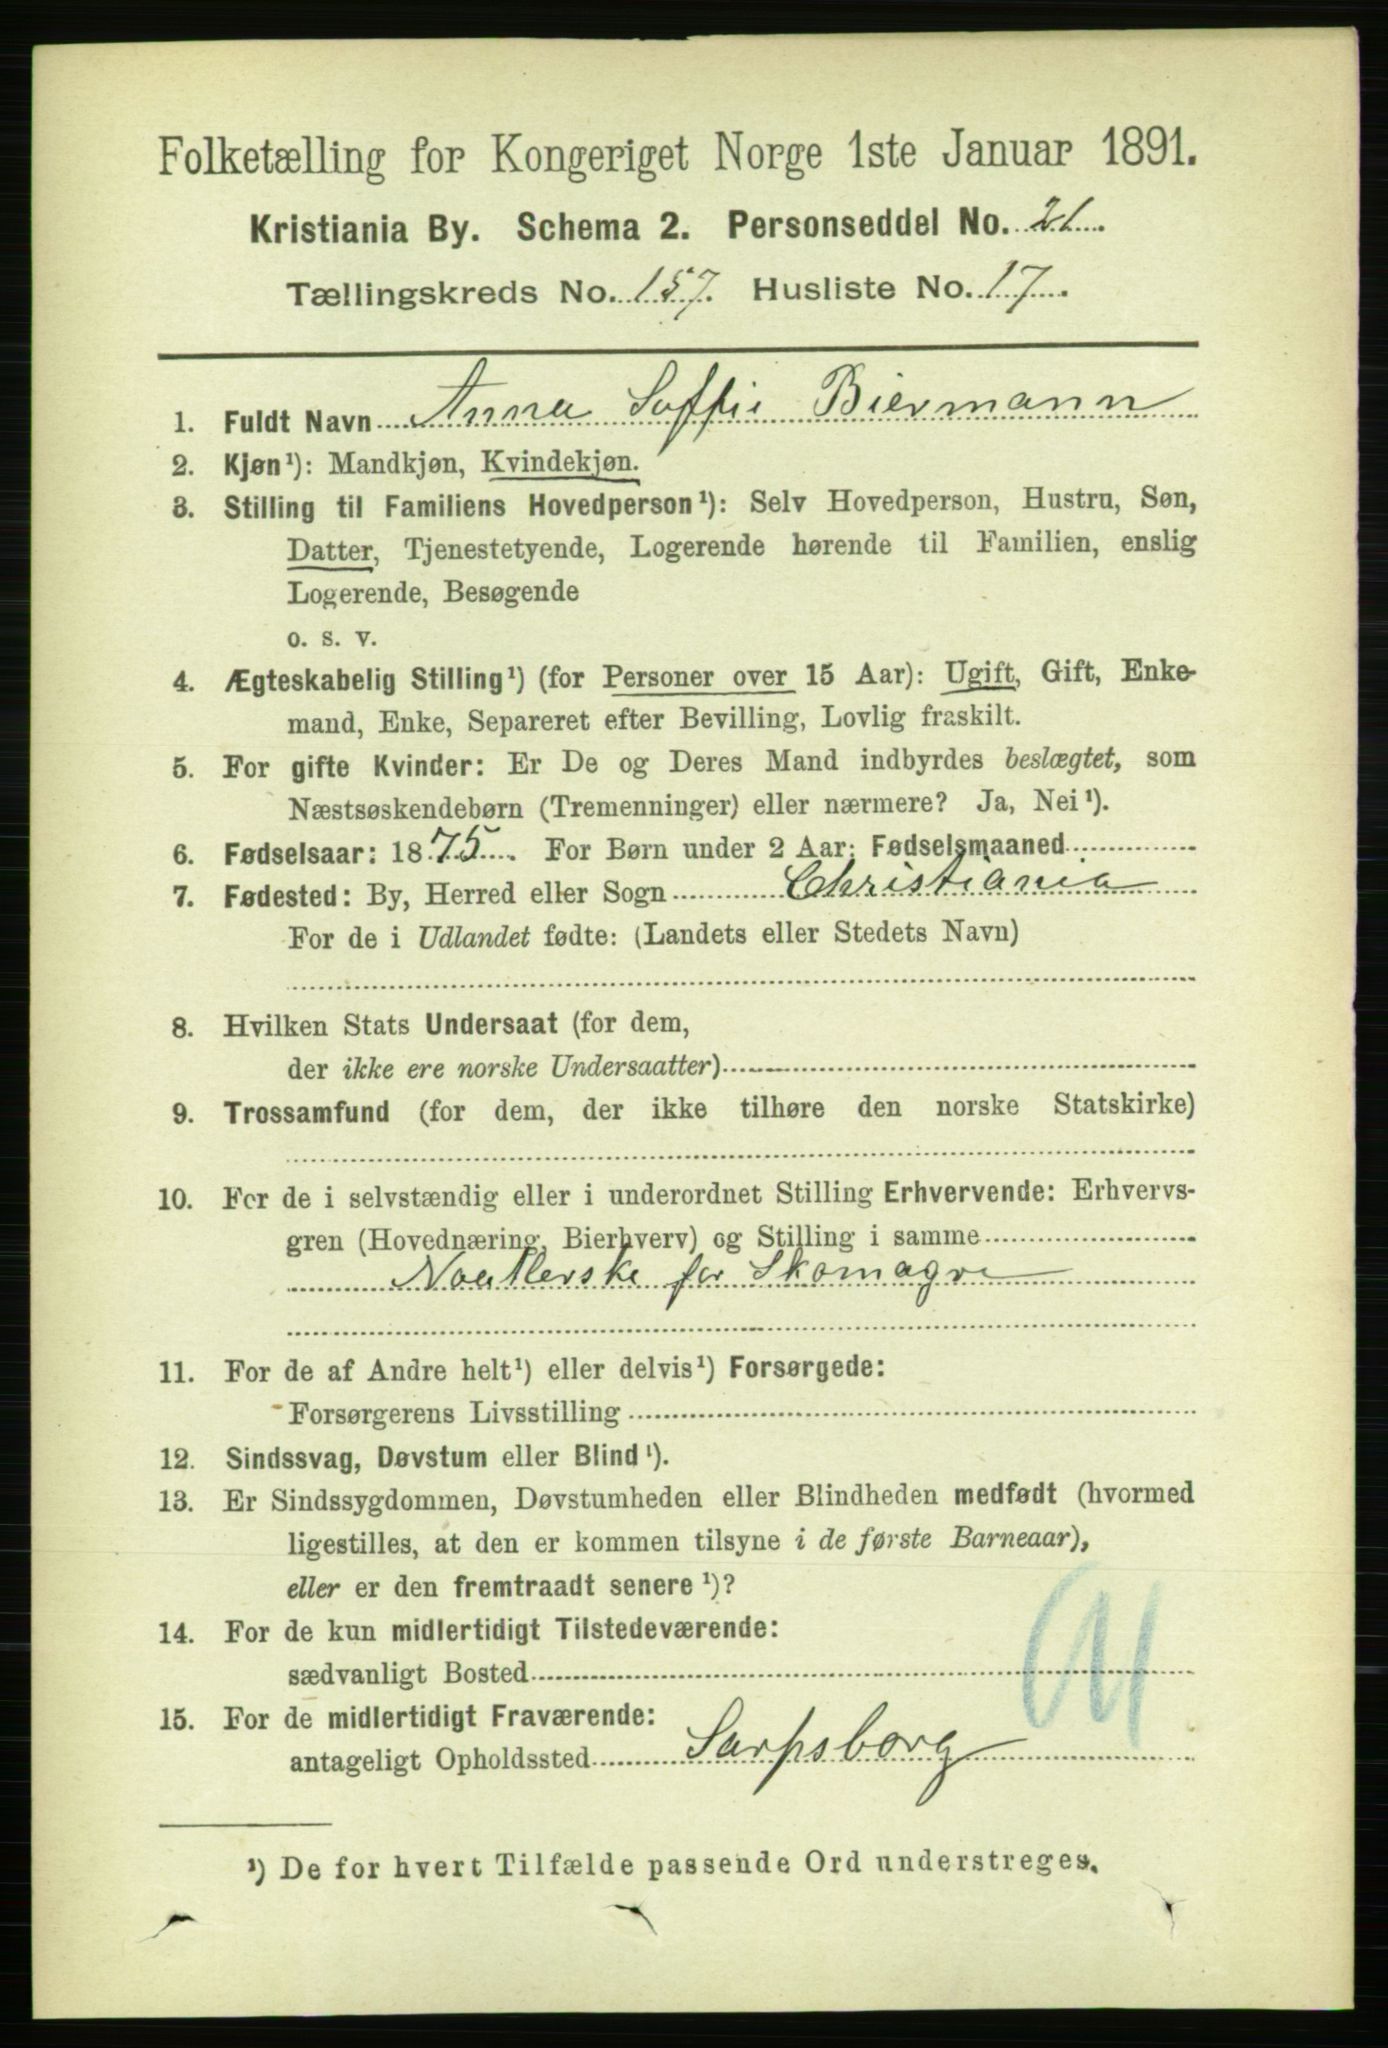 Folketælling for Kongeriget Norge 1ste Januar 1891.
Kristiania By. Schema 2. Personseddel No. 21.
Tællingskreds No. 157. Husliste No. 17.
1. Fuldt Navn Anna Soffie Biermann
2. Kjøn¹): Mandkjøn, Kvindekjøn.
3. Stilling til Familiens Hovedperson¹): Selv Hovedperson, Hustru, Søn,
Datter, Tjenestetyende, Logerende hørende til Familien, enslig
Logerende, Besøgende
o. s. v.
4. Ægteskabelig Stilling¹) (for Personer over 15 Aar): Ugift, Gift, Enke-
mand, Enke, Separeret efter Bevilling, Lovlig fraskilt.
5. For gifte Kvinder: Er De og Deres Mand indbyrdes beslægtet, som
Næstsøskendebørn (Tremenninger) eller nærmere? Ja, Nei¹).
6. Fødselsaar: 1875. For Børn under 2 Aar: Fødselsmaaned
7. Fødested: By, Herred eller Sogn Christiania
For de i Udlandet fødte: (Landets eller Stedets Navn)
8. Hvilken Stats Undersaat (for dem,
der ikke ere norske Undersaatter)
9. Trossamfund (for dem, der ikke tilhøre den norske Statskirke)
10. For de i selvstændig eller i underordnet Stilling Erhvervende: Erhvervs-
gren (Hovednæring, Bierhverv) og Stilling i samme
for Skomagre
11. For de af Andre helt¹) eller delvis¹) Forsørgede:
Forsørgerens Livsstilling
12. Sindssvag, Døvstum eller Blind¹).
13. Er Sindssygdommen, Døvstumheden eller Blindheden medfødt (hvormed
ligestilles, at den er kommen tilsyne i de første Barneaar),
eller er den fremtraadt senere¹)?
14. For de kun midlertidigt Tilstedeværende:
sædvanligt Bosted
15. For de midlertidigt Fraværende:
antageligt Opholdssted Sarpsborg
¹) De for hvert Tilfælde passende Ord understreges.